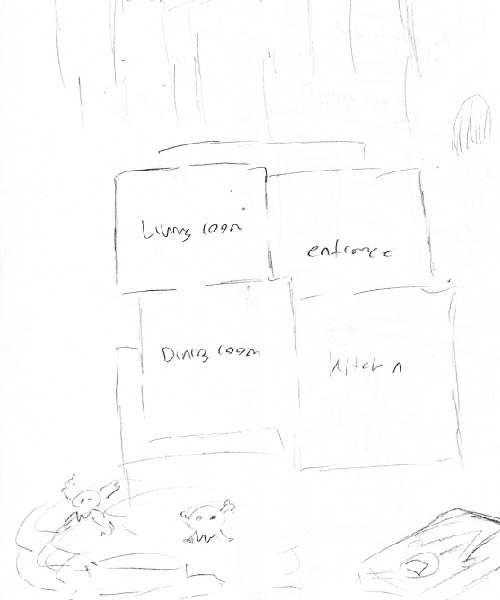 Living room
entrance
Dining room
kitchen